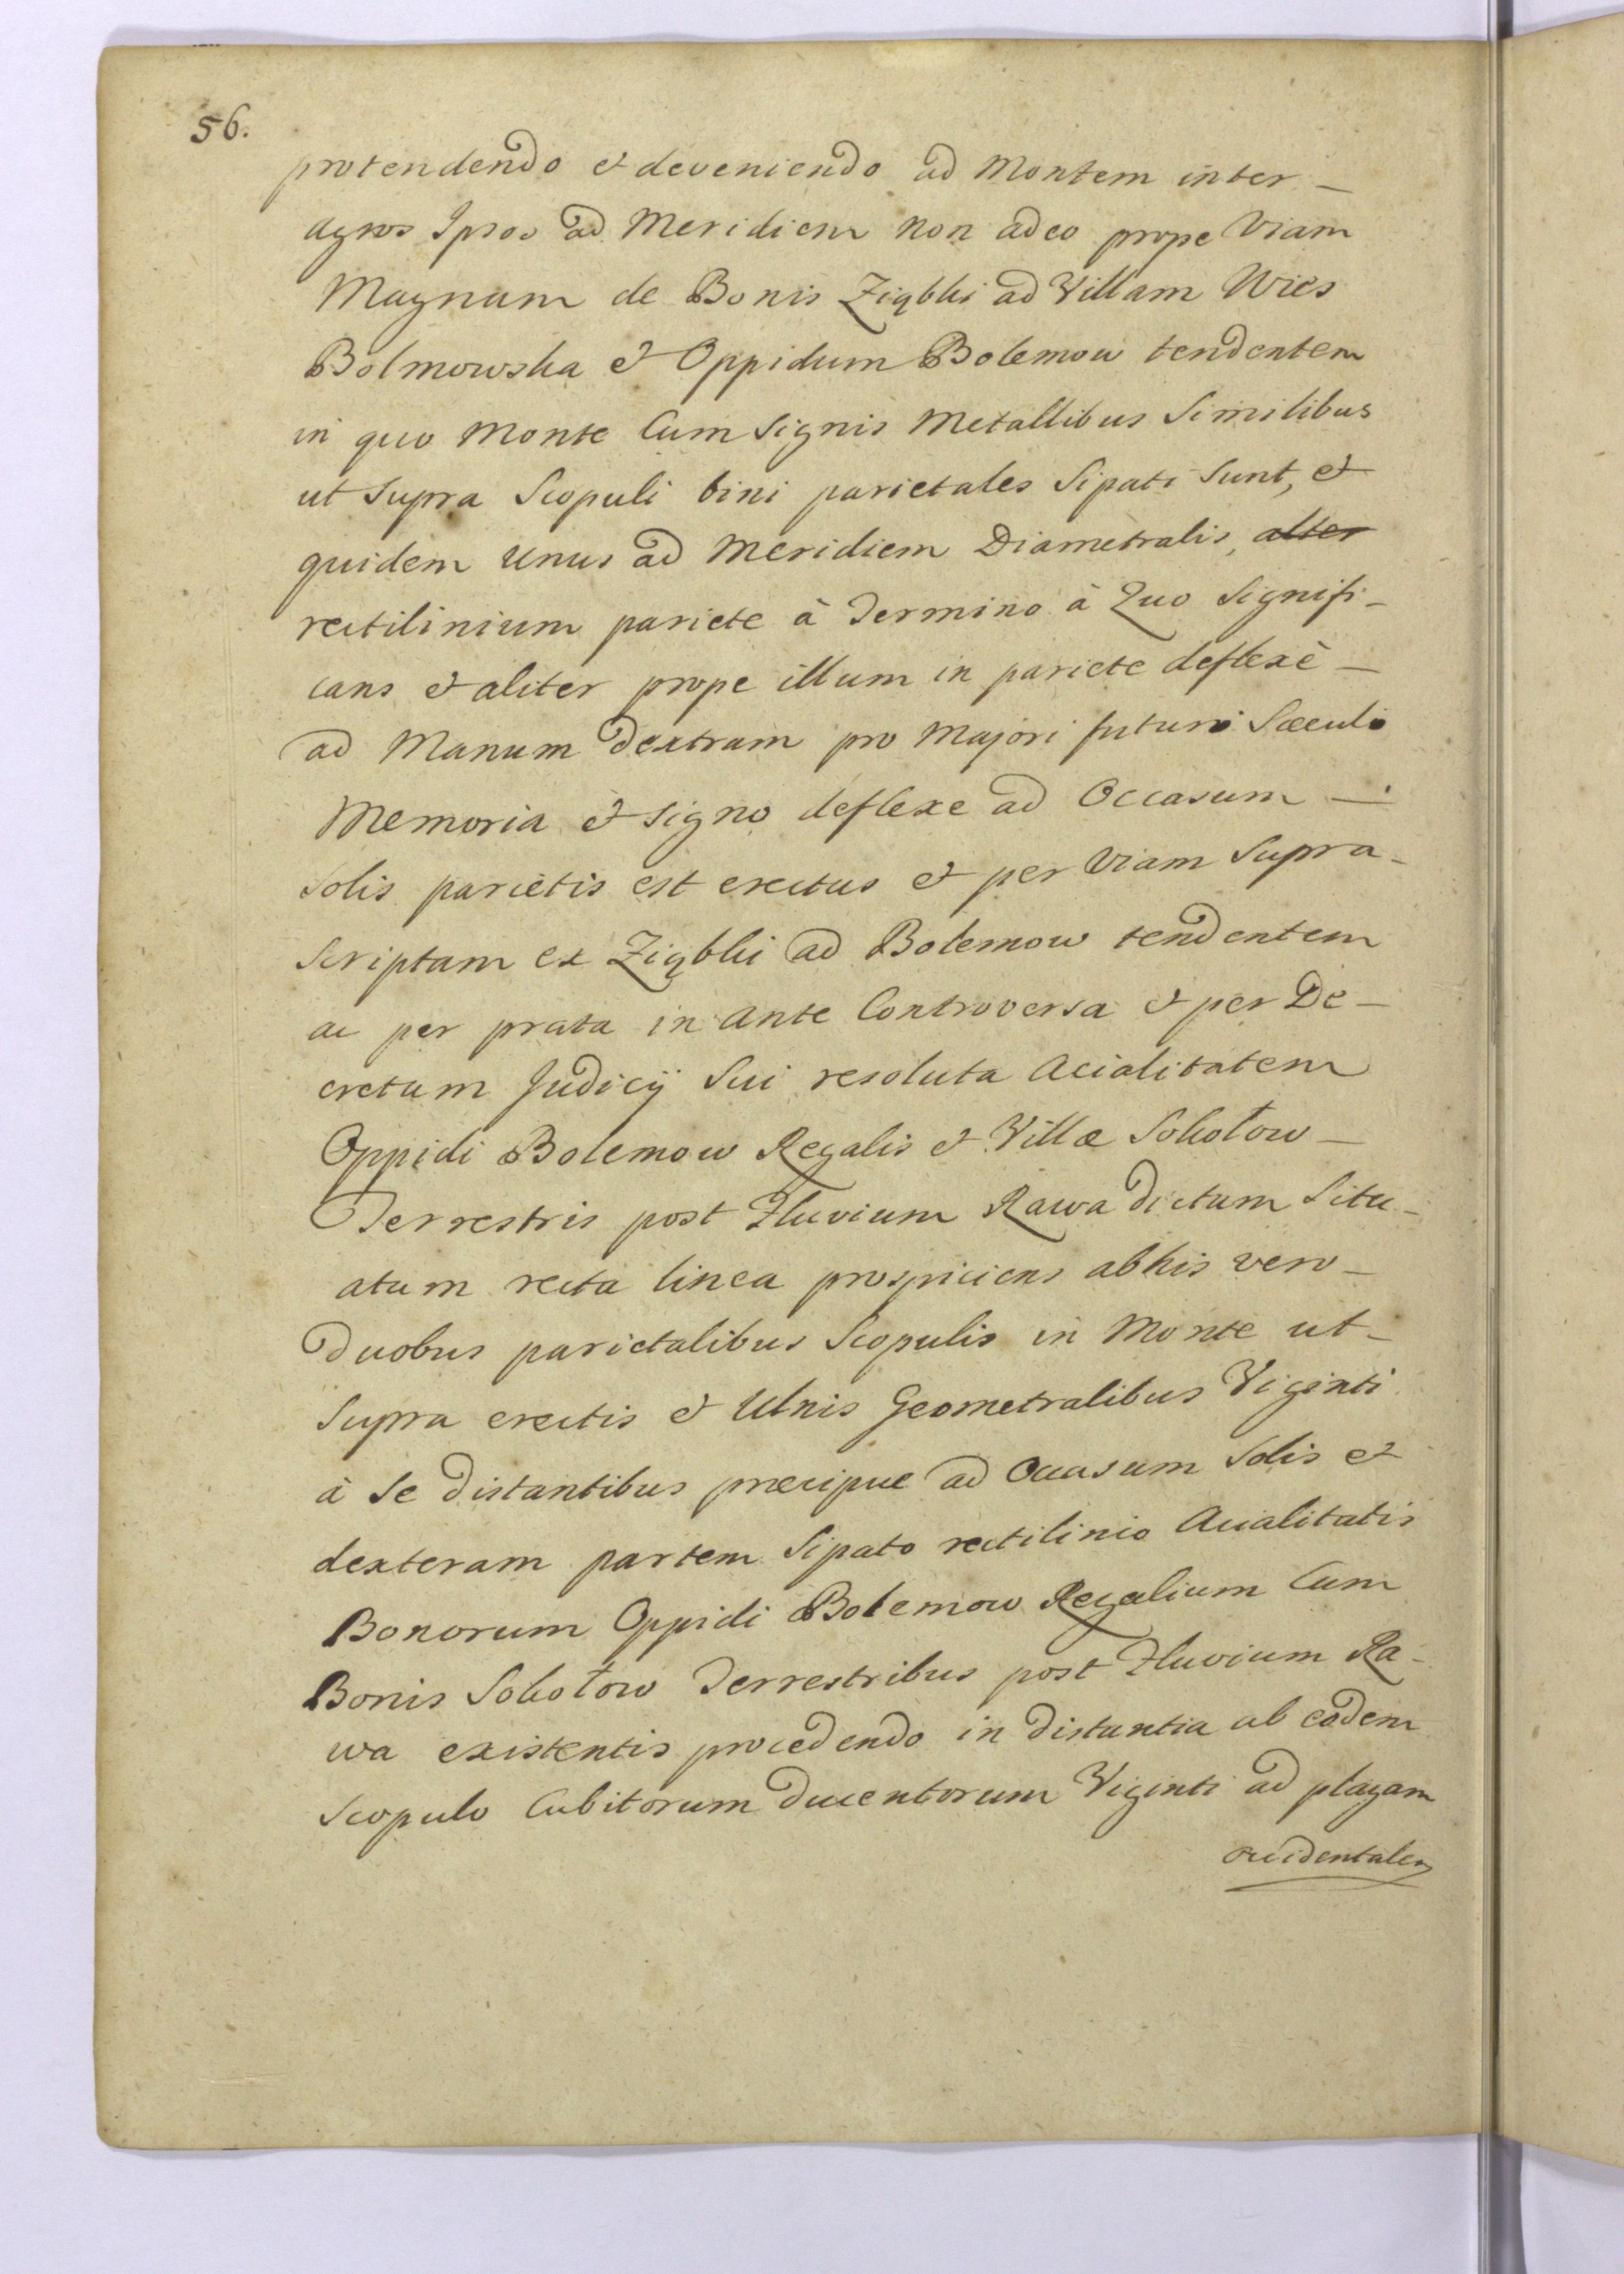 56.
protendendo et deveniendo ad Montem inter –
agros Ipsos ad Meridiem non adeo prope Viam
Magnam de Bonis Ziąbki ad Villam Wies
Bolmowska et Oppidum Bolemow tendentem
in quo Monte Cum Signis Metallibus Similibus
ut Supra Scopuli bini parietales Sipati Sunt, et
quidem Unus ad Meridiem Diametralis, alter
rectilinium pariete à Termino à Quo Signifi-
cans et aliter prope illum in pariete deflexè –
ad Manum dextram pro Majori futuri Sæculi
Memoria et signo deflexe ad Occasum –
Solis parietis est erectus et per Viam Supra-
Scriptam ex Ziąbki ad Bolemow tendentem
ac per prata in ante Controversa et per De-
cretum Judicÿ Sui resoluta Acialitatem
Oppidi Bolemow Regalis et Villæ Sokołow –
Terrestris post Fluvium Rawa dictum Situ-
atum recta linea prospiciens abhis vero –
duobus parietalibus Scopulis in Monte ut –
Supra erectis et Ulnis Geometralibus Viginti
à Se distantibus præcipue ad Occasum Solis et
dexteram partem Sipato rectilinio Acialitatis
Bonorum Oppidi Bolemow Regalium Cum
Bonis Sokołow Terrestribus post Fluvium Ra-
wa existentis procedendo in distantia ab eodem
Scopulo Cubitorum ducentorum Viginti ad plagam
occidentalem